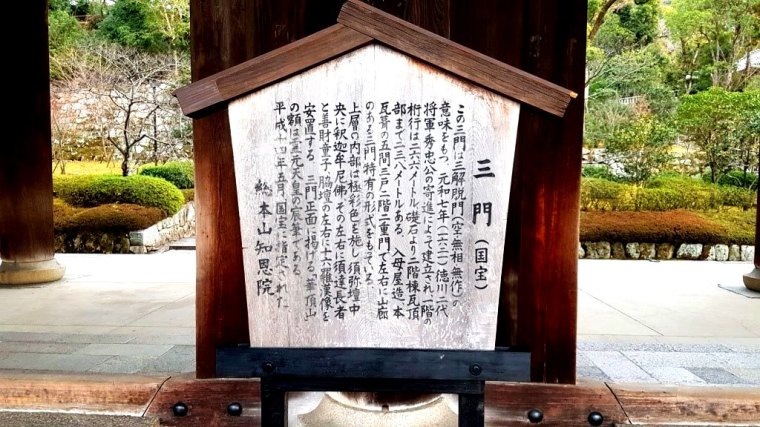 三門(国宝)
この三門は三解脱門(空・無相・無作)の
意味をもつ。元和七年(一六二一)徳川二代
将軍秀忠公の寄進によって建立され一階の
桁行は二六・六メートル礎石より二階棟瓦頂
部まで二三・八メートルある。入母屋造、本
瓦葺の五間三戸二階二重門で左右に山廊
のある三門特有の形式をもっている。
上層の内部は極彩色を施し須弥壇中
央に釈迦牟尼佛その左右に須達長者
と善財童子、脇壇の左右に十六羅漢像を
安置する。三門正面に掲げる「華頂山」
の額は霊元天皇の宸筆である。
平成十四年五月、国宝に指定された
総本山知恩院